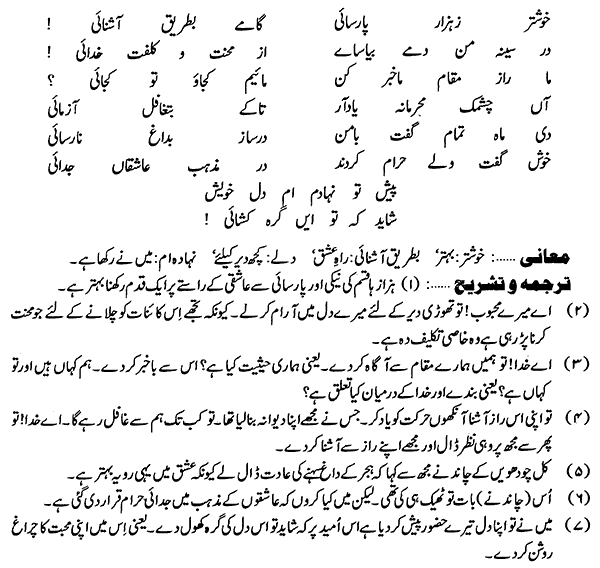 خوشتر زہزار پارسائی گامے بطریق آشنائی !
در سینہ من دمے بیاساے از محنت و کلفت خدائی !
ما راز مقام ماخبر کن مائیم کجاؤ تو کجائی ؟
آں چشمک محرمانہ یادآر تاکے بتغافل آزمائی
دی ماہ تمام گفت بامن درساز بداغ نارسائی
خوش گفت ولے حرام کردند در مذہب عاشقاں جدائی
پیش تو نہادم ام دل خویش
شاید کہ تو ایں گرہ کشائی !
معانی ......: خوشتر: بہتر‘ بطریق آشنائی: راہِ عشق‘ دلے: کچھ دیر کیلئے‘ نہادہ ام: میں نے رکھا ہے۔
ترجمہ و تشریح ......: (۱) ہزار ہا قسم کی نیکی اور پارسائی سے عاشقی کے راستے پر ایک قدم رکھنا بہتر ہے۔
(۲) اے میرے محبوب! تو تھوڑی دیر کے لئے میرے دل میں آرام کر لے۔ کیونکہ تجھے اِس کائنات کو چلانے کے لئے جو محنت
کرنا پڑ رہی ہے وہ خاصی تکلیف دہ ہے۔
(۳) اے خدا! تو ہمیں ہمارے مقام سے آگاہ کر دے۔ یعنی ہماری حیثیت کیا ہے؟ اس سے باخبر کر دے۔ ہم کہاں ہیں اور تو
کہاں ہے؟ یعنی بندے اور خدا کے درمیان کیا تعلق ہے؟
(۴) تو اپنی اس راز آشنا آنکھوں حرکت کو یاد کر۔ جس نے مجھے اپنا دیوانہ بنا لیا تھا۔ تو کب تک ہم سے غافل رہے گا۔ اے خدا! تو
پھر سے مجھ پر وہی نظر ڈال اور مجھے اپنے راز سے آشنا کر دے۔
(۵) کل چودھویں کے چاند نے مجھ سے کہا کہ ہجر کے داغ سہنے کی عادت ڈال لے کیونکہ عشق میں یہی رویہ بہتر ہے۔
(۶) اُس (چاند نے) بات تو ٹھیک ہی کی تھی۔ لیکن میں کیا کروں کہ عاشقوں کے مذہب میں جدائی حرام قرار دی گئی ہے۔
(۷) میں نے تو اپنا دل تیرے حضور پیش کر دیا ہے اس اُمید پر کہ شاید تو اس دل کی گرہ کھول دے۔ یعنی اِس میں اپنی محبت کا چراغ
روشن کر دے۔